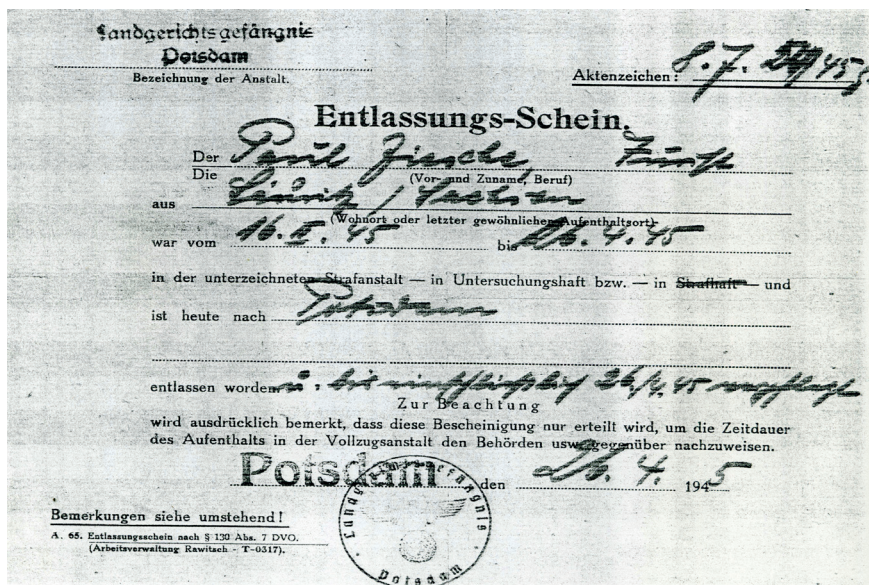 Landgerichtsgefängnis
Potsdam
Bezeichnung der Anstalt.
Aktenzeichen: 8.7. 45
Entlassungs-Schein.
Der Paul
Die
(Vor- und Zuname, Beruf)
aus / Sachsen
(Wohnort oder letzter gewöhnlicher Aufenthaltsort)
war vom 16. II. 45 bis 26. 4. 45
in der unterzeichneten Strafanstalt — in Untersuchungshaft bzw. — in Strafhaft — und
ist heute nach Potsdam
entlassen worden u. bis einschließlich 26/4. 45 verpflegt
Zur Beachtung
wird ausdrücklich bemerkt, dass diese Bescheinigung nur erteilt wird, um die Zeitdauer
des Aufenthalts in der Vollzugsanstalt den Behörden usw. gegenüber nachzuweisen.
Potsdam den 26. 4. 1945
Landgerichtsgefängnis
Potsdam
Bemerkungen siehe umstehend!
A. 65. Entlassungsschein nach § 130 Abs. 7 DVO.
(Arbeitsverwaltung Rawitsch - T-0317).